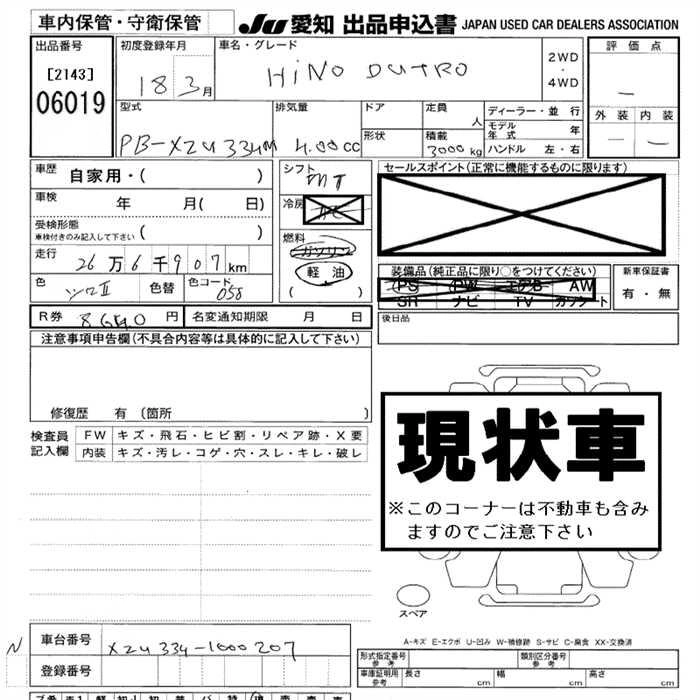 車内保管・守衛保管 JU 愛知 出品申込書 JAPAN USED CAR DEALERS ASSOCIATION
出品番号 初度登録年月 車名・グレード 評価点
[2143] 18 3月 HINO DUTRO 2WD ・ 4WD
06019
型式 排気量 ドア 定員 人 ディーラー・並行 外装 内装
モデル年式 年
PB-XZU334M 4.00cc 形状 積載 3000kg ハンドル 左・右
車歴 自家用・( ) シフト MT セールスポイント(正常に機能するものに限ります)
車検 年 月( 日) 冷房
受検形態
車検付きのみ記入して下さい ( ) 燃料 ガソリン
走行 26万6千907km 軽油 装備品(純正品に限り○をつけてください) 新車保証書
色 色替 色コード 058 ( ) PS PW エアB AW 有・無
SR ナビ TV カセット
R券 円 名変通知期限 月 日 後日品
注意事項申告欄(不具合内容等は具体的に記入して下さい)
修復歴 有 (箇所 )
検査員 FW キズ・飛石・ヒビ割・リペア跡・X要
記入欄 内装 キズ・汚レ・コゲ・穴・スレ・キレ・破レ
現状車
※このコーナーは不動車も含み
ますのでご注意下さい
スペア
A-キズ E-エクボ U-凹み W-補修跡 S-サビ C-腐食 XX-交換済
N 車台番号 XZU334-1000207
登録番号
形式指定番号 参考 類別区分番号 参考
車庫証明用 参考 長さ cm 幅 cm 高さ cm